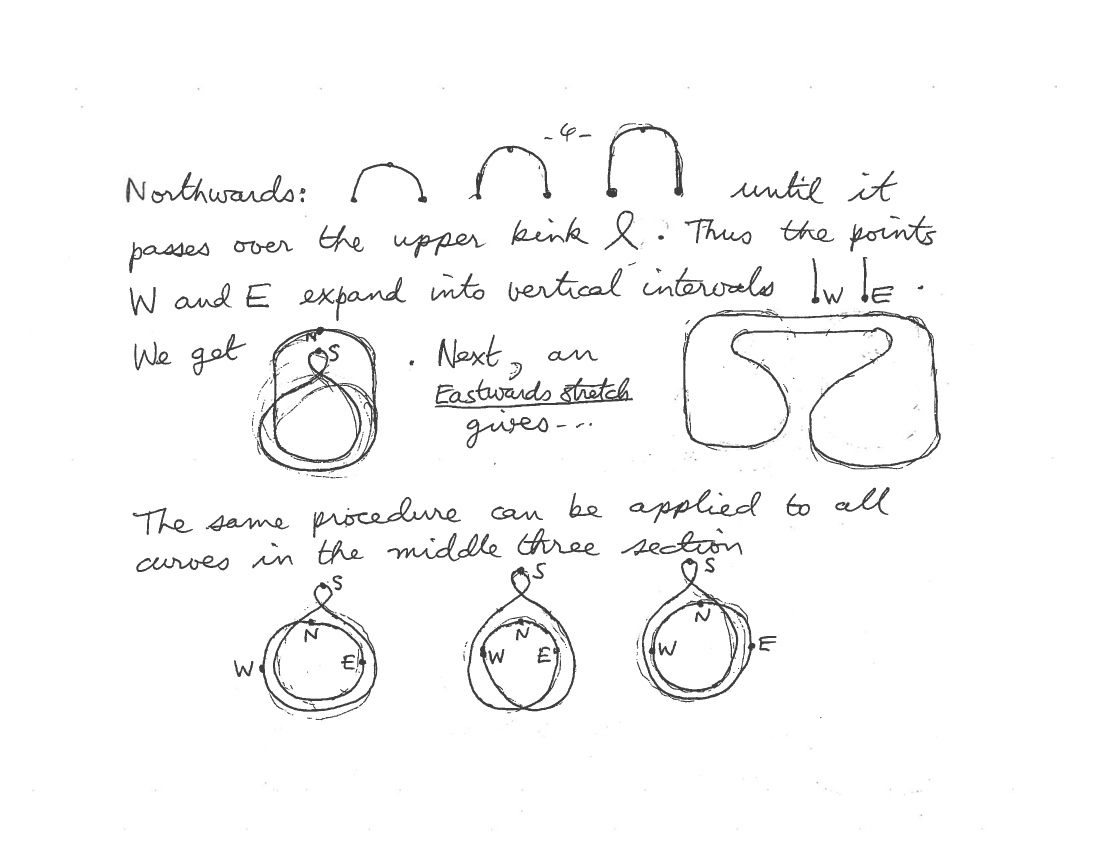 -4-
Northwards: until it
passes over the upper kink . Thus the points
W and E expand into vertical intervals W E .
We get N S . Next, an
Eastwards stretch
gives---
The same procedure can be applied to all
curves in the middle three section
S S S
N N N
W E W E W E